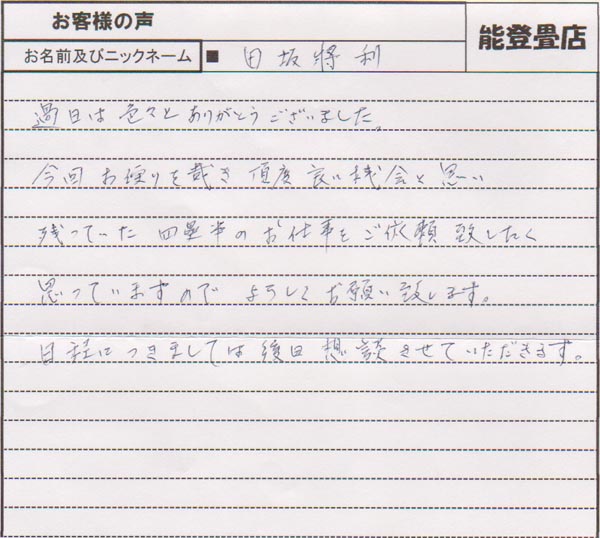 お客様の声
能登畳店
お名前及びニックネーム ■ 田坂將利
過日は色々とありがとうございました。
今回お便りを戴き頂度良い機会と思い
残っていた四畳半のお仕事をご依頼致したく
思っていますので よろしくお願い致します。
日程につきましては後日想談させていただきます。